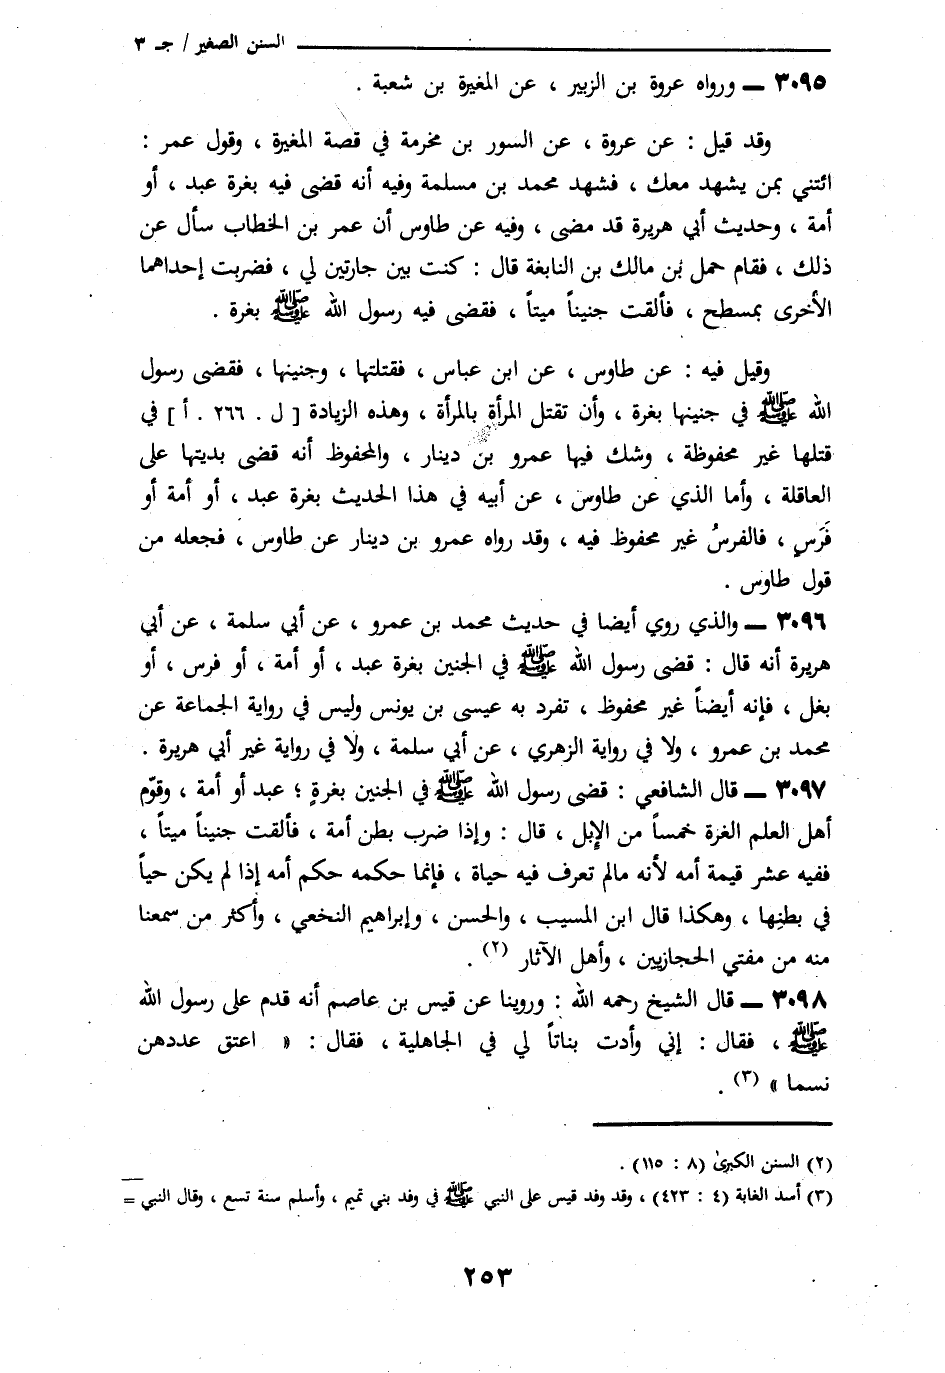 السنن الصغير / جـ ٣
٣٠٩٥ ــ ورواه عروة بن الزبير ، عن المغيرة بن شعبة .
وقد قيل : عن عروة ، عن السور بن مخرمة في قصة المغيرة ، وقول عمر :
ائتني بمن يشهد معك ، فشهد محمد بن مسلمة وفيه أنه قضى فيه بغرة عبد ، أو
أمة ، وحديث أبي هريرة قد مضى ، وفيه عن طاوس أن عمر بن الخطاب سأل عن
ذلك ، فقام حمل بن مالك بن النابغة قال : كنت بين جارتين لي ، فضربت إحداهما
الأخرى بمسطح ، فألقت جنيناً ميتاً ، فقضى فيه رسول الله ﷺ بغرة .
وقيل فيه : عن طاوس ، عن ابن عباس ، فقتلتها ، وجنينها ، فقضى رسول
الله ﷺ في جنينها بغرة ، وأن تقتل المرأة بالمرأة ، وهذه الزيادة [ ل . ٢٦٦ . أ ] في
قتلها غير محفوظة ، وشك فيها عمرو بن دينار ، والمحفوظ أنه قضى بديتها على
العاقلة ، وأما الذي عن طاوس ، عن أبيه في هذا الحديث بغرة عبد ، أو أمة أو
فَرَسٍ ، فالفرسُ غير محفوظ فيه ، وقد رواه عمرو بن دينار عن طاوس ، فجعله من
قول طاوس .
٣٠٩٦ ــ والذي روي أيضا في حديث محمد بن عمرو ، عن أبي سلمة ، عن أبي
هريرة أنه قال : قضى رسول الله ﷺ في الجنين بغرة عبد ، أو أمة ، أو فرس ، أو
بغل ، فإنه أيضاً غير محفوظ ، تفرد به عيسى بن يونس وليس في رواية الجماعة عن
محمد بن عمرو ، ولا في رواية الزهري ، عن أبي سلمة ، ولا في رواية غير أبي هريرة .
٣٠٩٧ ــ قال الشافعي : قضى رسول الله ﷺ في الجنين بغرةٍ ؛ عبد أو أمة ، وقوّم
أهل العلم الغرة خمساً من الإبل ، قال : وإذا ضرب بطن أمة ، فألقت جنيناً ميتاً ،
ففيه عشر قيمة أمه لأنه مالم تعرف فيه حياة ، فإنما حكمه حكم أمه إذا لم يكن حياً
في بطنها ، وهكذا قال ابن المسيب ، والحسن ، وإبراهيم النخعي ، وأكثر من سمعنا
منه من مفتي الحجازيين ، وأهل الآثار (٢) .
٣٠٩٨ ــ قال الشيخ رحمه الله : وروينا عن قيس بن عاصم أنه قدم على رسول الله
ﷺ ، فقال : إني وأدت بناتاً لي في الجاهلية ، فقال : « اعتق عددهن
نسما » (٣) .
(٢) السنن الكبرىٰ (٨ : ١١٥) .
(٣) أسد الغابة (٤ : ٤٢٣) ، وقد وفد قيس على النبي ﷺ في وفد بني تميم ، وأسلم سنة تسع ، وقال النبي =
٢٥٣